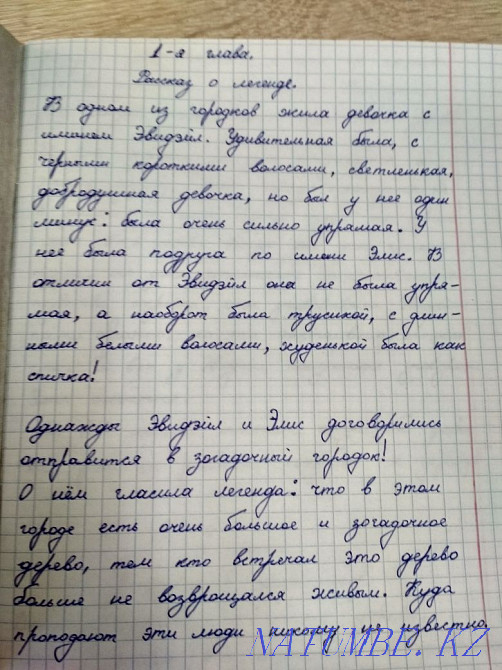 1-я глава.
Рассказ о легенде.
В одном из городков жила девочка с
именем Эвидзёл. Удивительная была, с
черными короткими волосами, светленькая,
добродушная девочка, но был у нее один
минус: была очень сильно упрямая. У
неё была подруга по имени Элис. В
отличии от Эвидзёл она не была упря-
мая, а наоборот была трусихой, с длин-
ными белыми волосами, худенькой была как
спичка!
Однажды Эвидзёл и Элис договорились
отправится в зогадочный городок!
О нём гласила легенда: что в этом
городе есть очень большое и зогадочное
дерево, тем кто встречал это дерево
больше не возврощался живым. Куда
проподают эти люди никому не известно.
NATUMBE.KZ